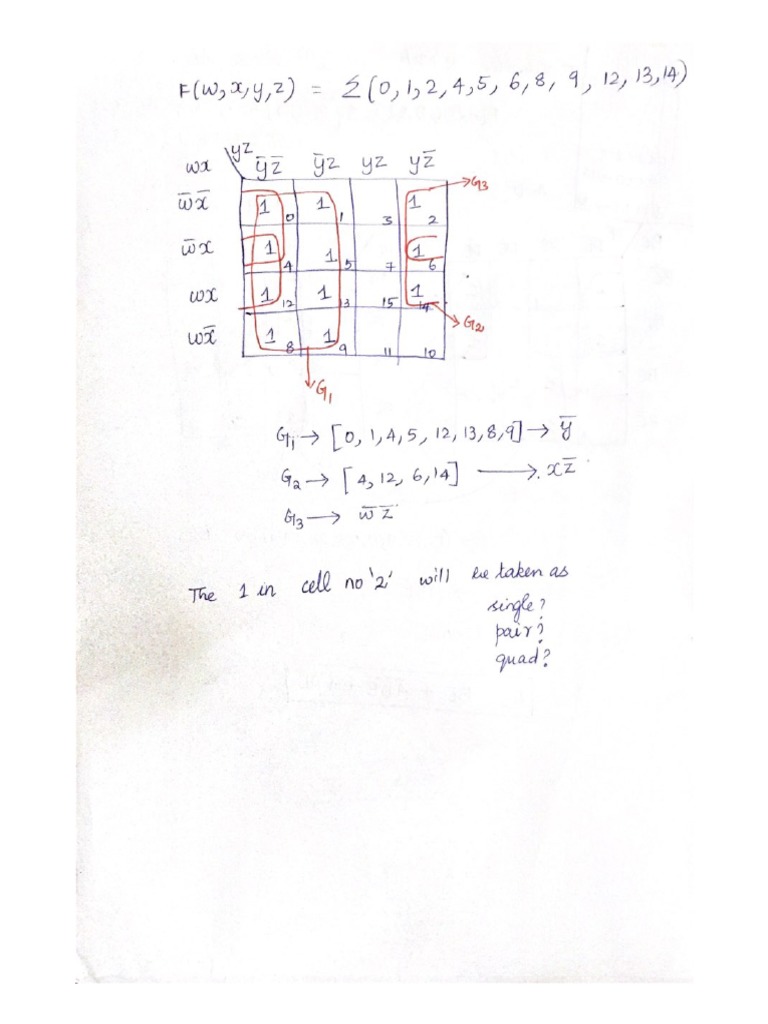 F(w,x,y,z) = Σ(0,1,2,4,5, 6,8, 9, 12,13,14)
wx yz y̅z̅ y̅z yz yz̅
w̅x̅ 1 0 1 1 3 1 2 →G3
w̅x 1 4 1 5 7 1 6
wx 1 12 1 13 15 1 14
→G2
wx̅ 1 8 1 9 11 10
G1
G1 → [0,1,4,5, 12,13,8,9] → y̅
G2 → [4,12, 6,14] → xz̅
G3 → w̅ z̅
The 1 in cell no '2' will be taken as
single?
pair?
quad?